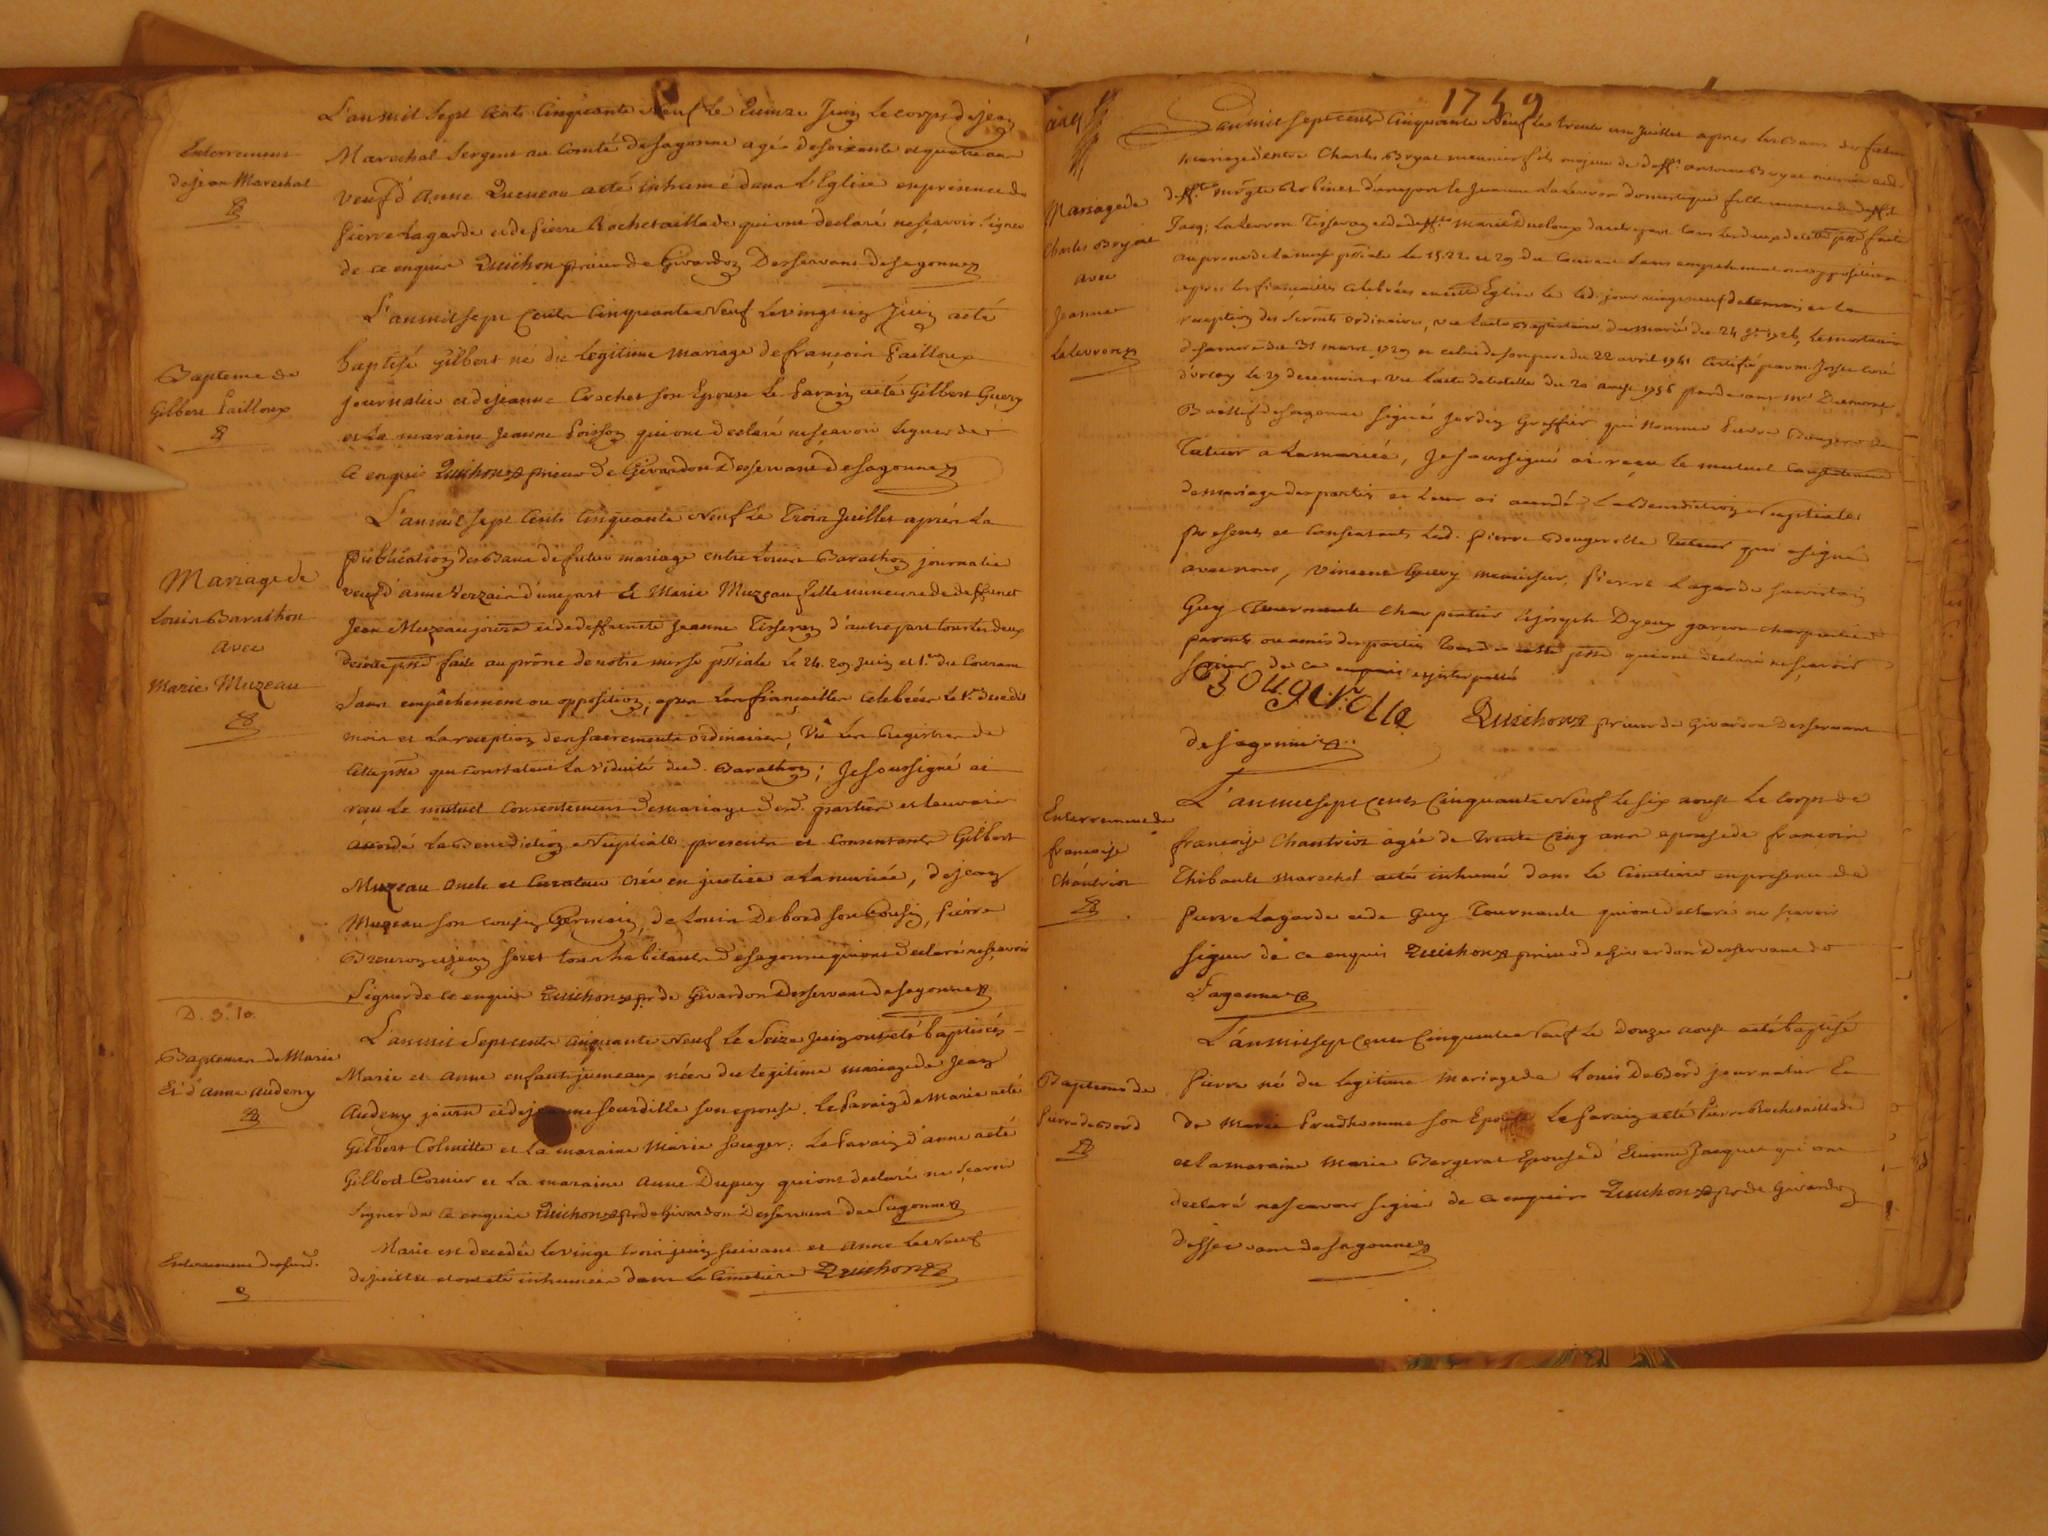 Enterrement
de jean Marechal
L'an mil sept cents Cinquante Neuf le Quinze Juin le corps de jean
Marechal Sergent au Comté de Sagonne agé de soixante et quatre ans
veuf d'Anne Queneau a eté inhumé dans l'Eglise en présence de
Pierre Lagarde et de Pierre Rochetaillade qui ont declaré ne scavoir signer
de ce enquis Quichon prieur de Givardon Desservant de Sagonne
Bapteme de
Gilbert Failloux
L'an mil sept Cents Cinquante Neuf le vingt Juin a eté
baptisé Gilbert né du legitime mariage de françois Failloux
journalier et de jeanne Crochet son Epouse le Parain a eté Gilbert Guery
et la maraine Jeanne Poisson qui ont declaré ne scavoir signer de
ce enquis Quichon prieur de Givardon Desservant de Sagonne
Mariage de
Louis Barathon
avec
Marie Muzeau
L'an mil sept Cents Cinquante Neuf le Trois Juillet après la
publication des Bans de futur mariage entre Louis Barathon journalier
veuf d'anne d'une part et Marie Muzeau fille mineure de deffunct
Jean Muzeau et de deffuncte Jeanne Tisseran d'autre part tous les deux
de cette psse faite au prône de notre messe pssiale le 24. 29 Juin et 1er du Courant
sans empêchement ou opposition, apres les fiançailles celebrées le 1er dudit
mois et la reception des sacrements ordinaires, Vû les Registres de
cette psse qui constatent la viduité dud. Barathon; Je soussigné ai
reçu le mutuel consentement de mariage desd. parties et leur ai
accordé la Benediction Nuptiale presents et consentants Gilbert
Muzeau oncle et Curateur créé en justice a la mariée, de jean
Muzeau son cousin Germain, de Louis Debord son Cousin, Pierre
et jean tous habitants de Sagonne qui ont declaré ne scavoir
signer de ce enquis Quichon pr de Givardon Desservant de Sagonne
D. 3. 10.
Baptemes de Marie
Et d'Anne Audeny
L'an mil Sept cents cinquante Neuf le Seize Juin ont eté baptisées
Marie et Anne enfants jumeaux nées du legitime mariage de Jean
Audeny journ et de jeanne Sourdille son epouse. Le Parain de Marie a eté
Gilbert Colmitte et la maraine Marie Souger: Le Parain d'anne a eté
Gilbert Cornier et la maraine Anne Dupuy qui ont declaré ne scavoir
signer de ce enquis Quichon pr de Givardon Desservant de Sagonne
Enterrement
Marie est decedée le vingt trois juin suivant et Anne le Neuf
de juillet et ont eté inhumées dans le Cimetiere Quichon
1759
Mariage de
Charles Bryat
avec
Jeanne
Lalevron
L'an mil sept cents Cinquante Neuf le trente un Juillet apres les Bans de futur
mariage d'entre Charles Bryat meunier fils majeur de deff. antoine Bryat meunier et de
deff.te Margte Robinet d'une part et Jeanne Lalevron domestique fille mineure de deff.t
Jacq. Lalevron Tisseran et de deff.te Marie d'autre part tous les deux de cette psse faite
au prone de la messe pssiale le 15. 22. et 29 du Courant sans empechement ou opposition
apres les fiançailles celebrées en cette Eglise le led. jour vingt neuf de ce mois et la
reception des Serments ordinaires, vue l'acte Baptistaire du marié du 24 1726, le mortuaire
de sa mere du 31 mars 1729 et celui de son pere du 22 avril 1741 Certifié par m. curé
d'urcay le 29 decembre. Vue l'acte de tutelle du 20 1756 par devant mr Dumont
Baillif de Sagonne signé Jordin Greffier qui nomme Pierre Bougerolle
Tuteur a la mariée, je soussigné ai reçu le mutuel consentement
de mariage des parties et leur ai accordé la Benediction Nuptiale
presents et consentants led. Pierre Bougerolle Tuteur qui a signé
avec nous, Vincent Guery menuisier, Pierre Lagarde sacristain
Guy Tournault charpentier et joseph Dyeux garçon charpentier
parents ou amis des parties tous de cette psse qui ont declaré ne scavoir
signer de ce enquis
Bougerolle Quichon prieur de Givardon Desservant
de Sagonne
Enterrement de
françoise
Chantriot
L'an mil sept Cents Cinquante Neuf le six aoust le Corps de
françoise Chantriot agée de trente Cinq ans epouse de françois
Thibault Marechal a eté inhumé dans le Cimetiere en presence de
Pierre Lagarde et de Guy Tournault qui ont declaré ne scavoir
signer de ce enquis Quichon prieur de Givardon Desservant de
Sagonne
Bapteme de
Pierre Debord
L'an mil sept Cents Cinquante Neuf le douze aoust a eté baptisé
Pierre né du legitime Mariage de Louis Debord journalier Et
de Marie Prudhomme son Epouse Le Parain a eté Pierre Rochetaillade
et la maraine Marie Bergerat Epouse d'Etienne Jacquet qui ont
declaré ne scavoir signer de ce enquis Quichon pr de Givardon
desservant de Sagonne